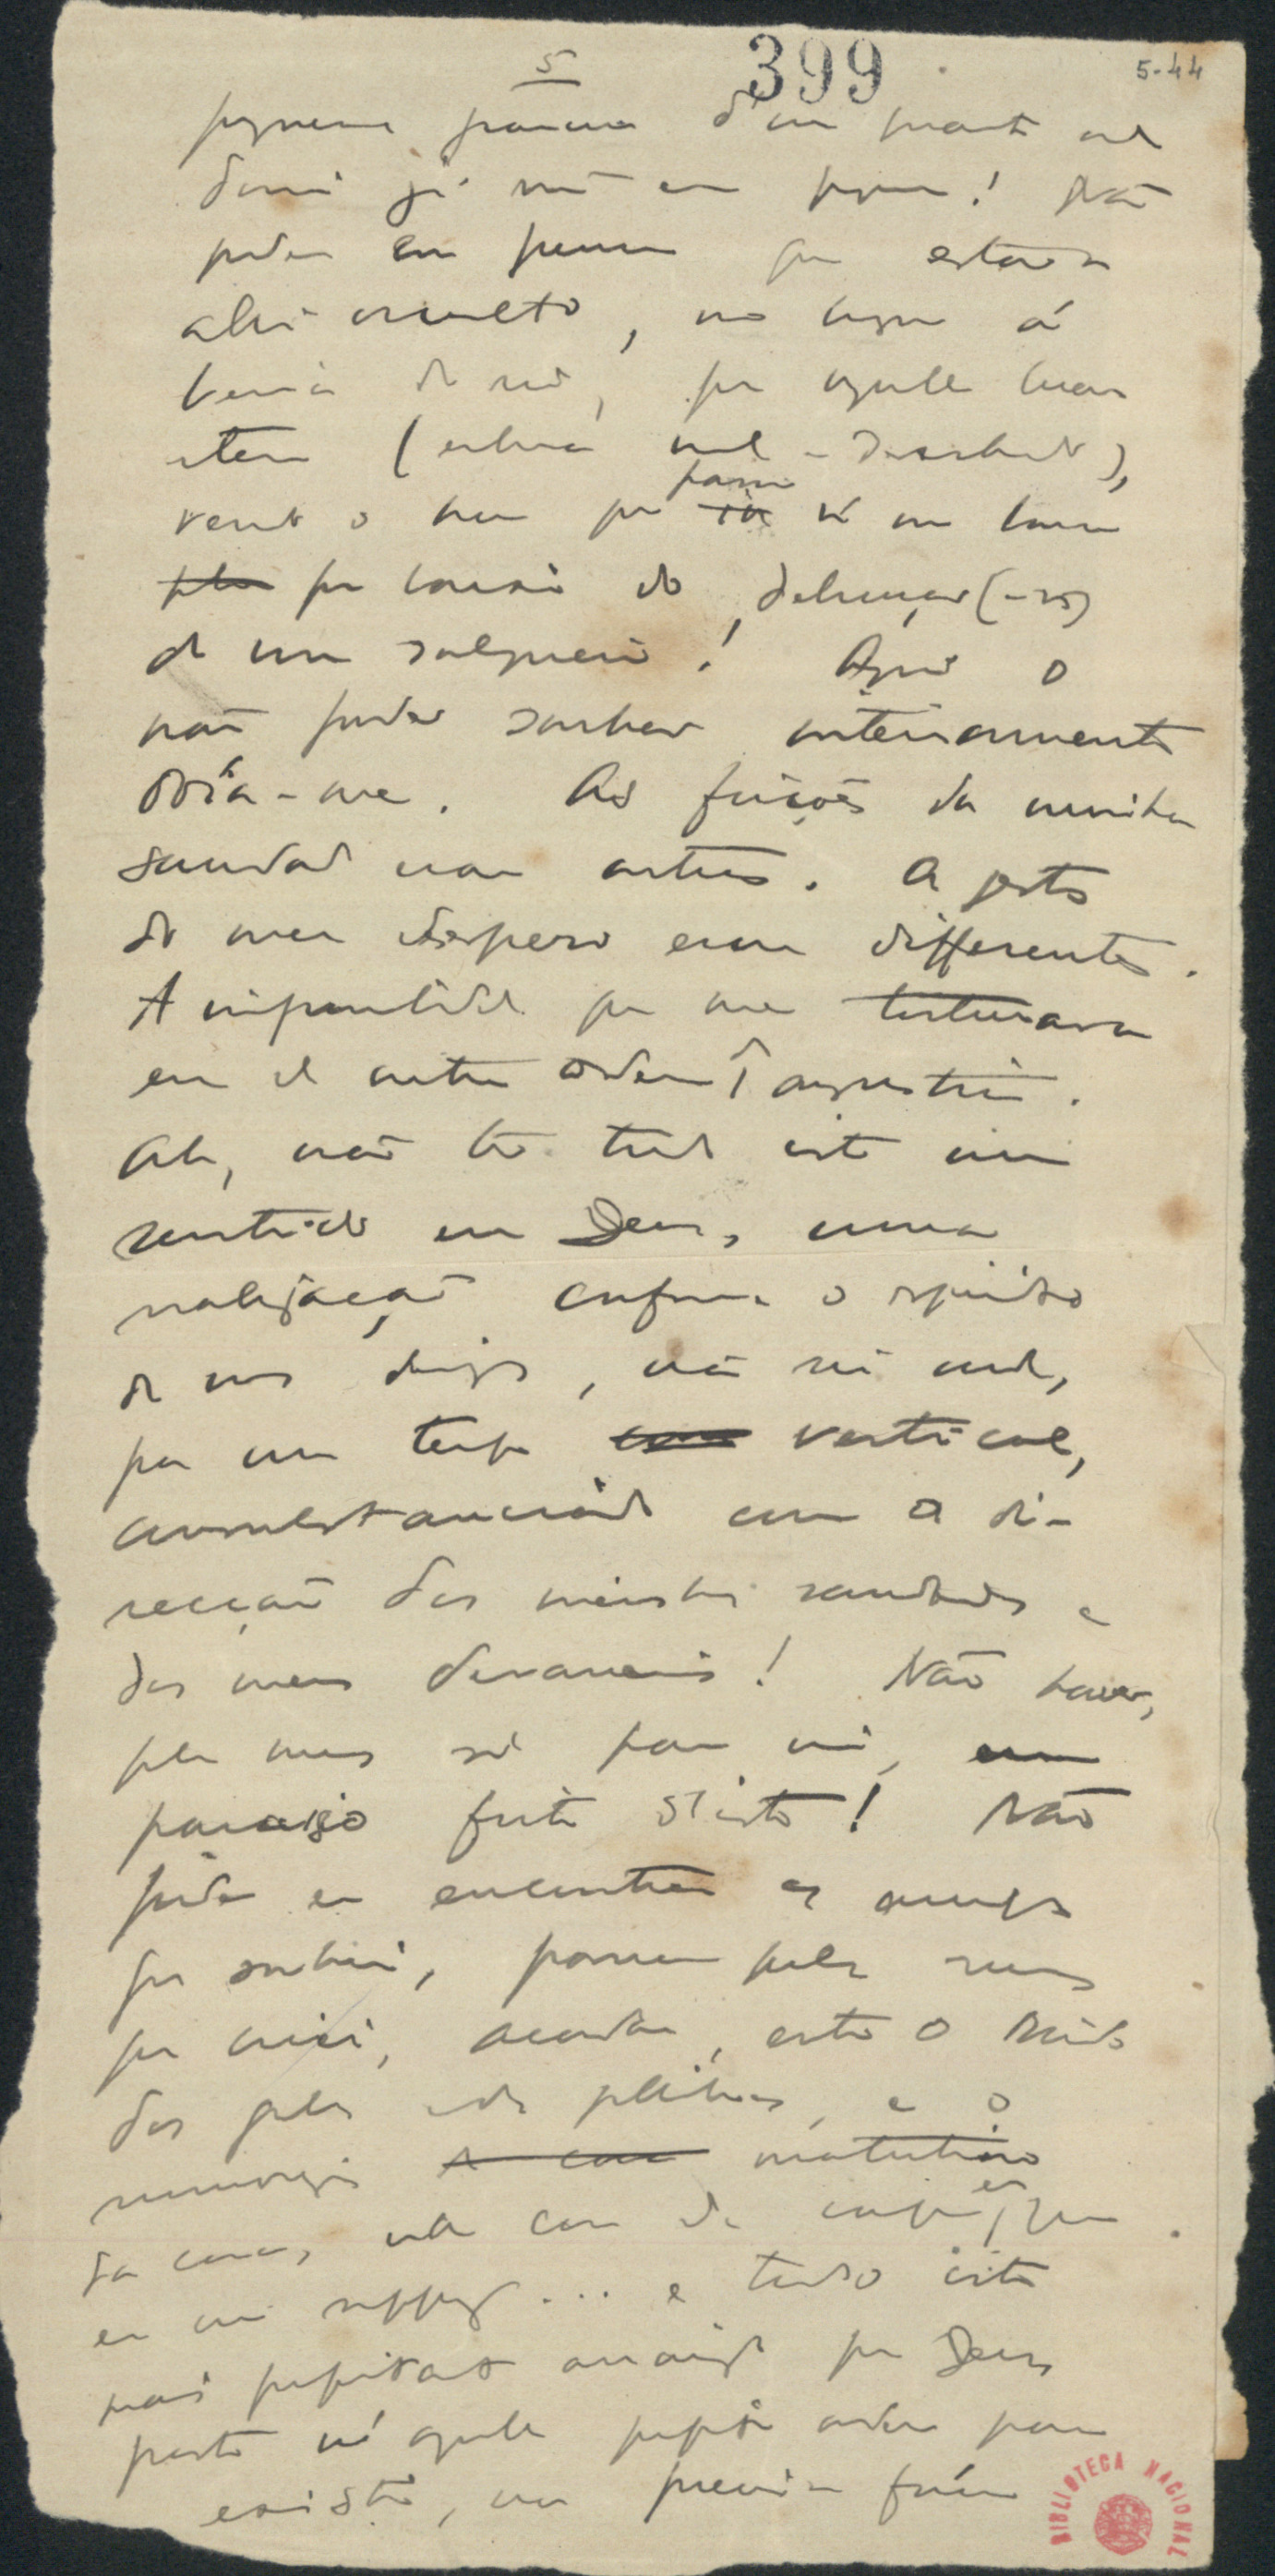 5 399 5-44
pequena janella d'um quarto onde
dormi já não em pequeno! Não
poder eu pensar que estava
alli occulto, no bosque á
beira do rio, por aquelle luar
eterno (embora mal-desenhado),
vendo o homem que passa n'um barco
por baixo do debruçar(-se)
de um salgueiro! Aqui o
não poder sonhar inteiramente
doía-me. As feições da minha
saudade eram outras. Os gestos
do meu desespero eram differentes.
A impossibilidade que me torturava
era de outra ordem angustia.
Ah, não ter tudo isto um
sentido em Deus, uma
realização conforme o espirito
de nossos desejos, não sei onde,
por um tempo vertical,
consubstanciado com a di-
recção das minhas saudades e
dos meus devaneios! Não haver,
pelo menos só para mim, um
paraiso feito d'isto! Não
poder eu encontrar os amigos
que sonhei, passear pelas ruas
que criei, acordar, entre o ruido
dos gallos e das gallinhas, e o
rumorejar matutino
da casa, na casa de campo em que
eu me suppuz... e tudo isto
mais perfeitamente arranjado por Deus
posto n'aquella perfeita ordem para
existir, na precisa fórma
BIBLIOTECA NACIONAL